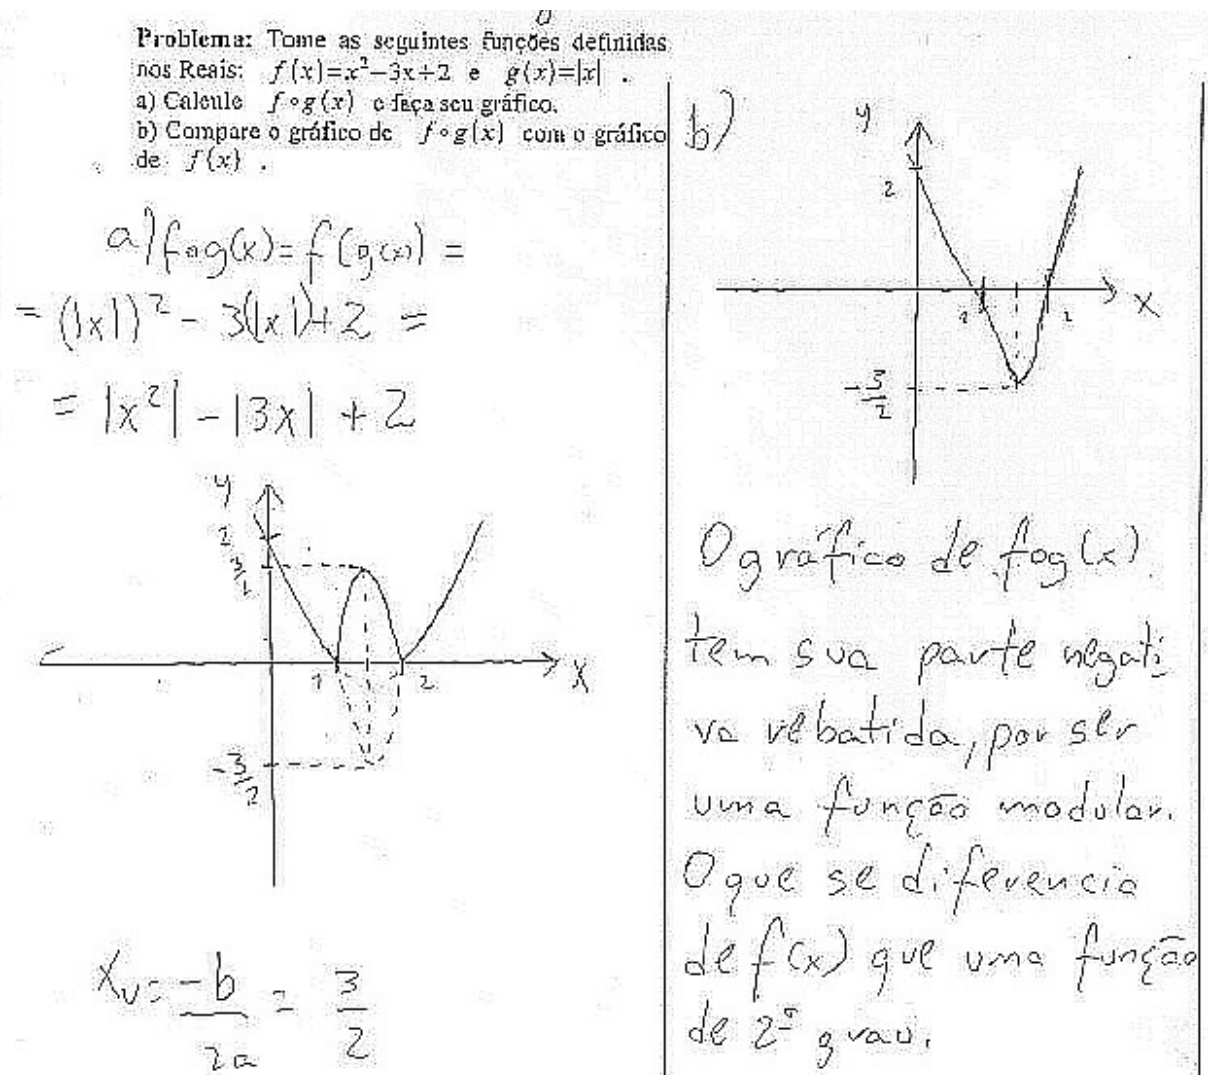 Problema: Tome as seguintes funções definidas
nos Reais: f(x)=x²−3x+2 e g(x)=|x| .
a) Calcule f∘g(x) e faça seu gráfico.
b) Compare o gráfico de f∘g(x) com o gráfico
de f(x) .
a) fog(x) = f(g(x)) =
= (|x|)² - 3(|x|)+2 =
= |x²| - |3x| + 2
y
2
3/2
1
2
x
-3/2
Xv = -b/2a = 3/2
b)
y
2
1
2
x
-3/2
O gráfico de fog(x)
tem sua parte negati
va rebatida, por ser
uma função modular.
O que se diferencia
de f(x) que uma função
de 2º grau.